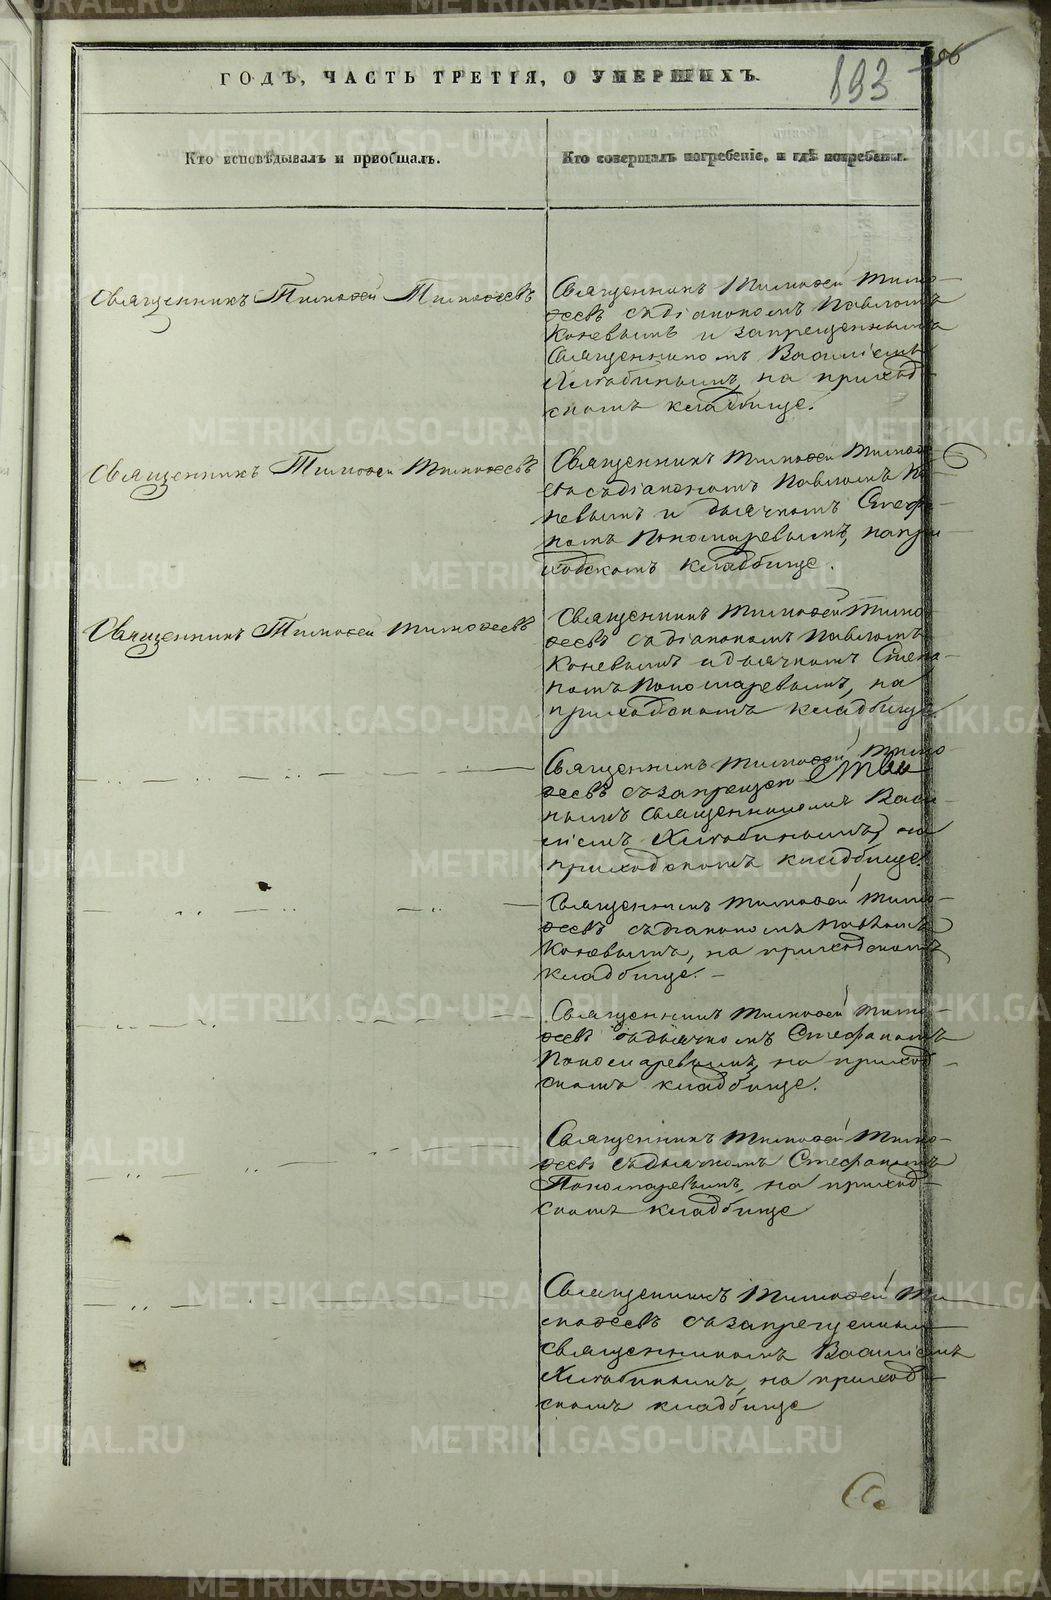 ГОДЪ, ЧАСТЬ ТРЕТІЯ, О УМЕРШИХЪ.
193
Кто исповѣдывалъ и пріобщалъ.
Кто совершалъ погребеніе, и гдѣ погребены.
Священникъ Тимоѳей Тимоѳеевъ
Священникъ Тимоѳей Тимо-
ѳеевъ съ діакономъ Павломъ
Коневымъ и запрещеннымъ
Священникомъ Василіемъ
на приход-
скомъ кладбище.
Священникъ Тимоѳей Тимоѳеевъ
Священникъ Тимоѳей Тимоѳе-
евъ съ діакономъ Павломъ Ко-
невымъ и дьячкомъ Стефа-
номъ Пономаревымъ, на при-
ходскомъ кладбище.
Священникъ Тимоѳей Тимоѳеевъ
Священникъ Тимоѳей Тимо-
ѳеевъ съ діакономъ Павломъ
Коневымъ и дьячкомъ Стефа-
номъ Пономаревымъ, на
приходскомъ кладбище.
Священникъ Тимоѳей Тимо-
ѳеевъ съ запрещен-
нымъ Священникомъ Васи-
ліемъ на
приходскомъ кладбище.
Священникъ Тимоѳей Тимо-
ѳеевъ съ діакономъ Павломъ
Коневымъ, на приходскомъ
кладбище. -
Священникъ Тимоѳей Тимо-
ѳеевъ съ дьячкомъ Стефаномъ
Пономаревымъ, на приход-
скомъ кладбище.
Священникъ Тимоѳей Тимо-
ѳеевъ съ дьячкомъ Стефаномъ
Пономаревымъ, на приход-
скомъ кладбище
Священникъ Тимоѳей Ти-
моѳеевъ съ запрещеннымъ
священникомъ Василіемъ
на приход-
скомъ кладбище
METRIKI.GASO-URAL.RU